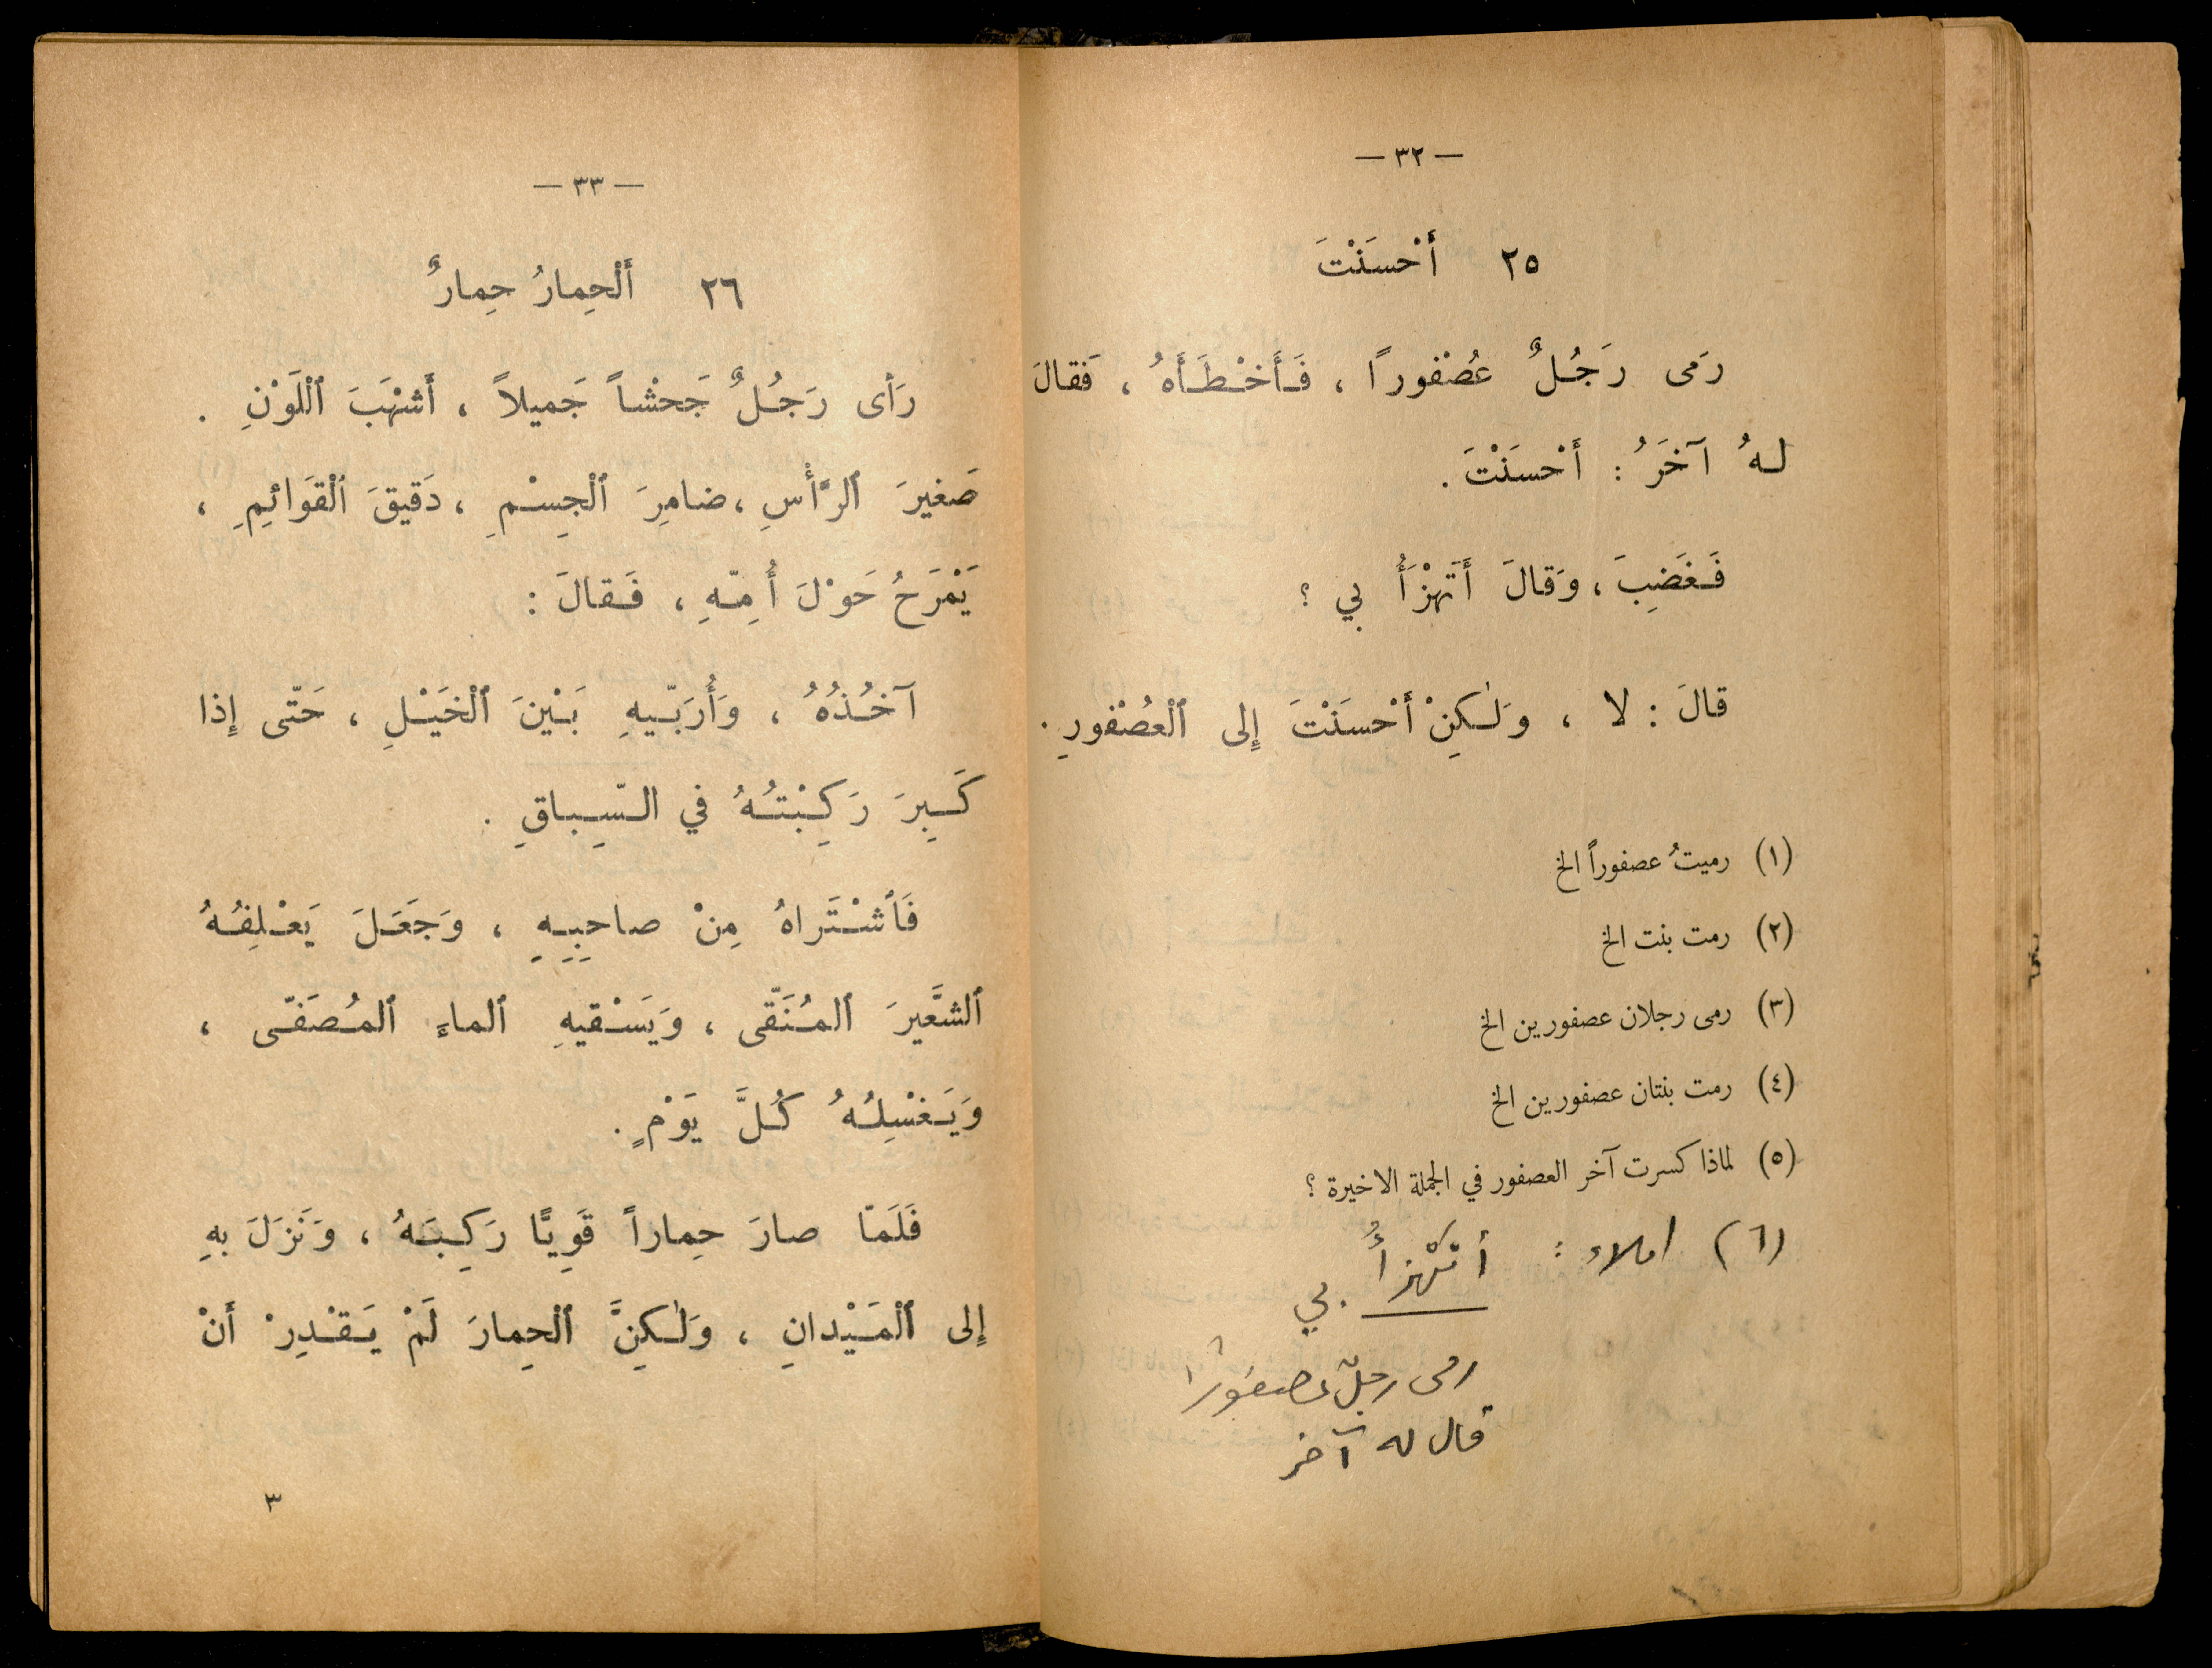 — ٣٢ —
٢٥ أَحْسَنْتَ
رَمى رَجُلٌ عُصْفوراً ، فَأَخْطَأَهُ ، فَقالَ
لهُ آخَرُ : أَحْسَنْتَ .
فَغَضِبَ ، وَقالَ أَتَهْزَأُ بي ؟
قالَ : لا ، وَلٰكِنْ أَحْسَنْتَ إِلى ٱلْعُصْفورِ .
(١) رميتُ عصفوراً الخ
(٢) رمت بنت الخ
(٣) رمى رجلان عصفورين الخ
(٤) رمت بنتان عصفورين الخ
(٥) لماذا كسرت آخر العصفور في الجملة الاخيرة ؟
(٦) املاء : أتَهزأُ بي
رمى رجلٌ عصفورًا
قال له آخر
— ٣٣ —
٢٦ أَلْحِمارُ حِمارٌ
رَأى رَجُلٌ جَحْشاً جَميلاً ، أَشْهَبَ ٱللَّوْنِ .
صَغيرَ ٱلرَّأْسِ ، ضامِرَ ٱلْجِسْمِ ، دَقيقَ ٱلْقَوَائِمِ ،
يَمْرَحُ حَوْلَ أُمِّهِ ، فَقالَ :
آخُذُهُ ، وَأُرَبّيهِ بَيْنَ ٱلْخَيْلِ ، حَتّى إِذا
كَبِرَ رَكِبْتُهُ في السِّباقِ .
فَٱشْتَراهُ مِنْ صاحِبِهِ ، وَجَعَلَ يَعْلِفُهُ
ٱلشَّعيرَ ٱلمُنَقّى ، وَيَسْقيهِ ٱلماءَ ٱلمُصَفّى ،
وَيَغْسِلُهُ كُلَّ يَوْمٍ .
فَلَمّا صارَ حِماراً قَوِيًّا رَكِبَهُ ، وَنَزَلَ بهِ
إِلى ٱلْمَيْدانِ ، وَلٰكِنَّ ٱلْحِمارَ لَمْ يَقْدِرْ أَنْ
٣